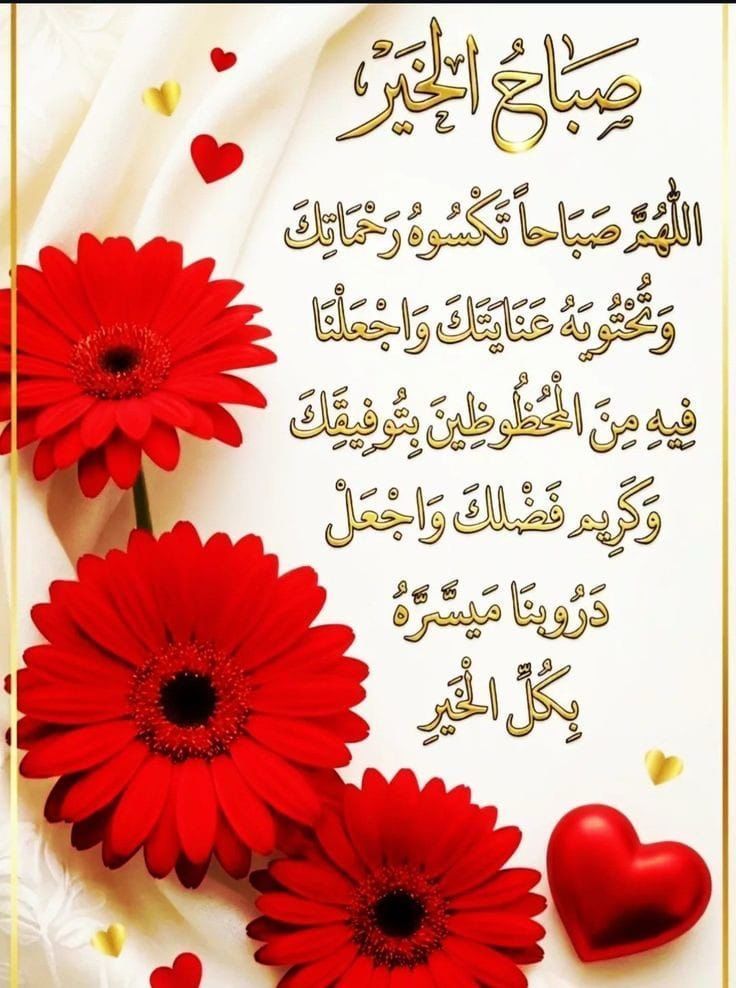 صَبَاحُ الخَيْر
اللَّهُمَّ صَبَاحاً تَكْسُوهُ رَحْمَاتِكَ
وَتُحْتُويَهُ عَنَايَتَكَ وَاجْعَلْنَا
فِيهِ مِنَ الْمُحْظُوظِينَ بِتُوفِيقِكَ
وَكَرِيم فَضْلكَ وَاجْعَلْ
دَرُوبنَا مَيسَّرَّهُ
بِكُلِّ الْخَيَرِ